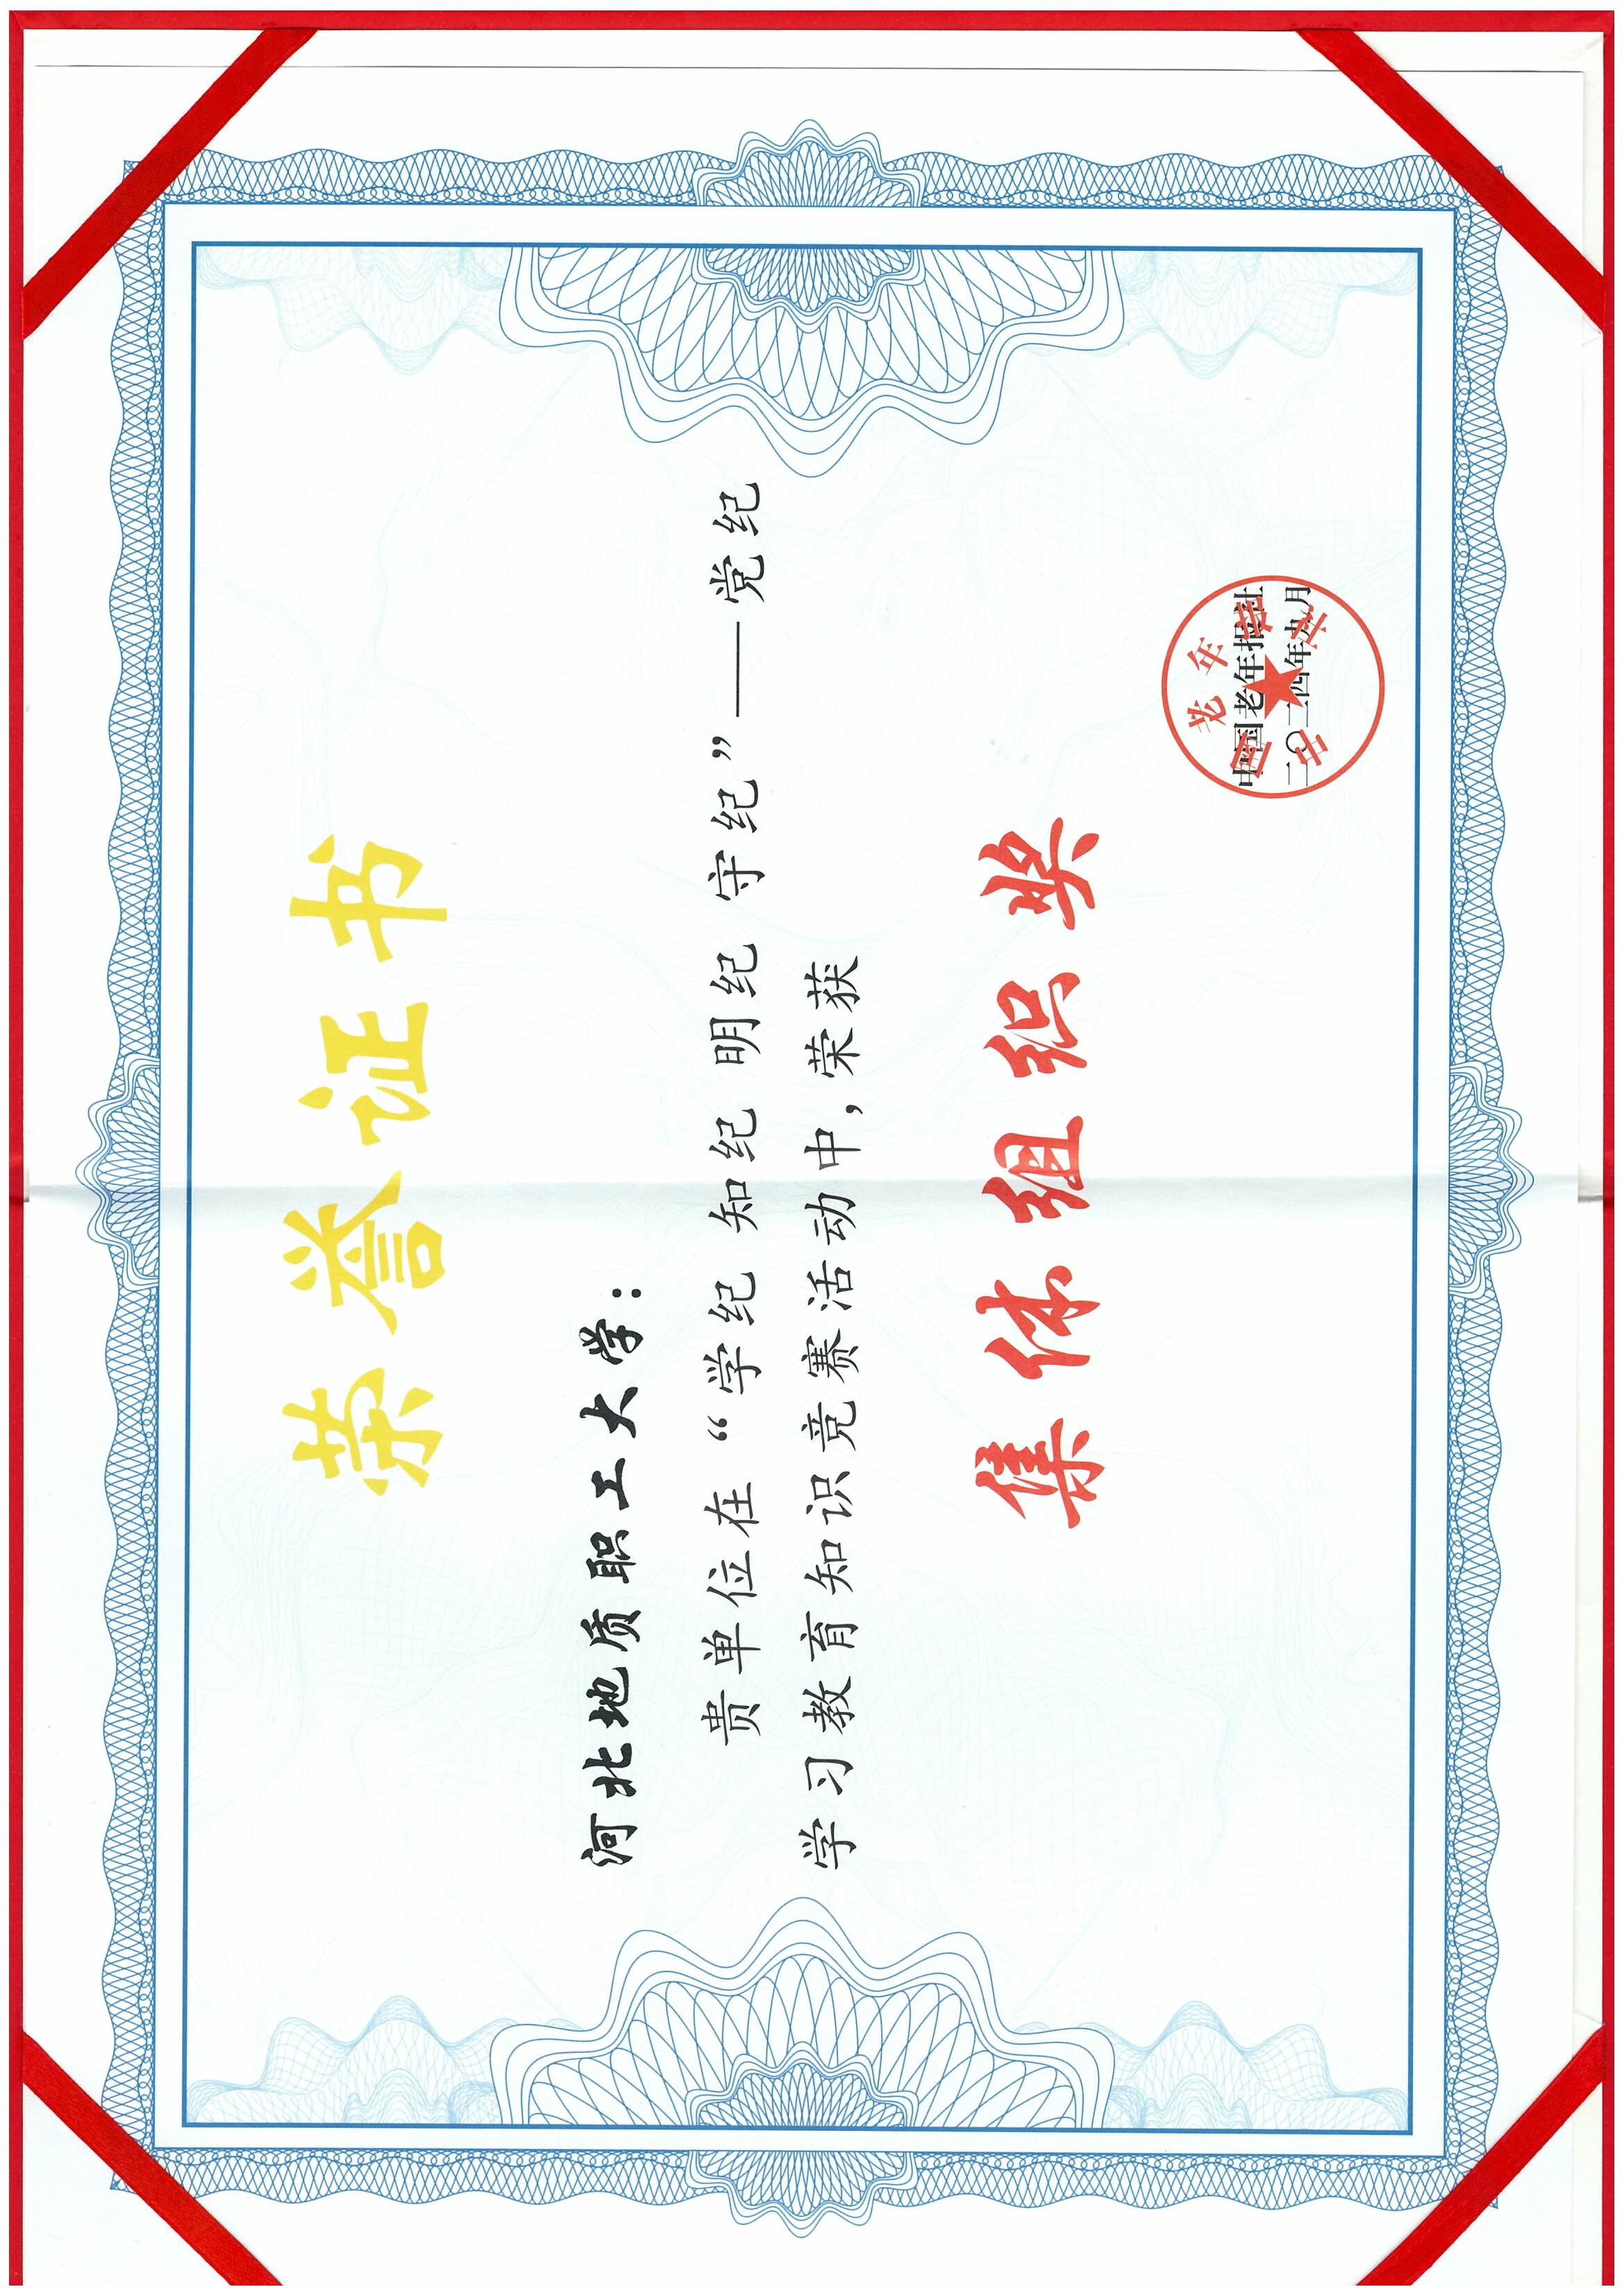 荣誉证书
河北地质职工大学：
贵单位在“学纪 知纪 明纪 守纪”——党纪
学习教育知识竞赛活动中，荣获
集体组织奖
中国老年报社
二〇二四年九月
中国老年报社